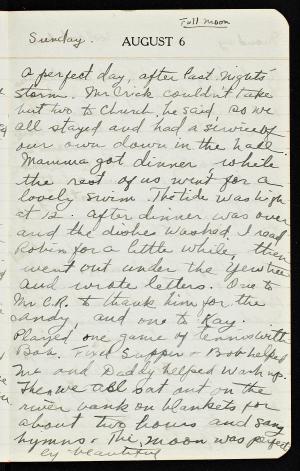 Full moon
Sunday.
AUGUST 6
A perfect day, after last night's
storm. Mr. Crick couldn't take
but two to Church, he said, so we
all stayed and had a service of
our own down in the hall.
Mamma got dinner while
the rest of us went for a
lovely swim. The tide was high
at 12. After dinner was over
and the dishes washed, I read
Robin for a little while, then
went out under the Yew tree
and wrote letters. One to
Mr. C.R. to thank him for the
candy, and one to Kay.
Played one game of tennis with
Bob. Fixed Supper & Bob helped
me and Daddy helped wash up.
Then we all sat out on the
river bank on blankets for
about two hours and sang
hymns & The moon was perfect
ly beautiful